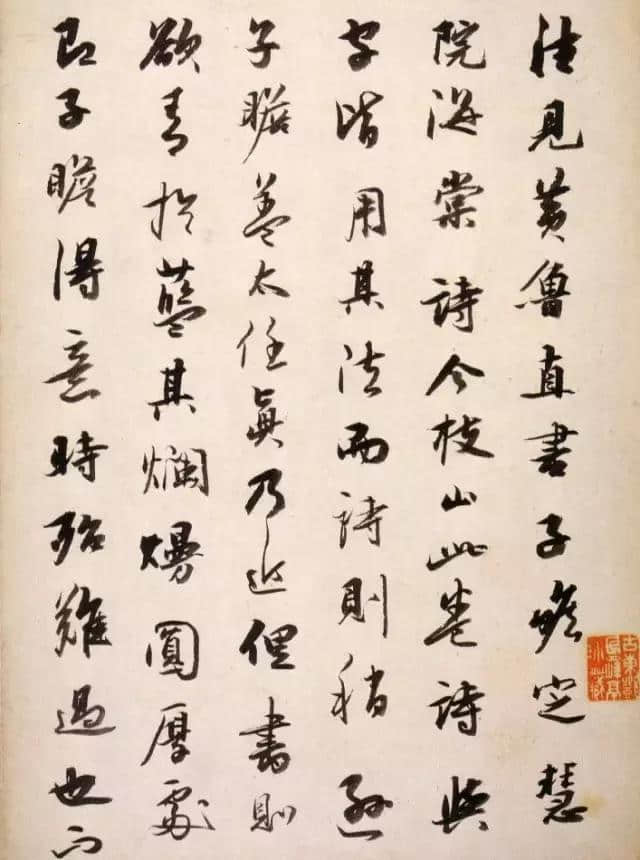 往見黃魯直書子瞻定慧
院海棠詩今枝山此卷詩與
字皆用其法而詩則稍遜
子瞻蓋太任眞乃近俚書則
欲青於藍其爛熳圓厚處
即子瞻得意時殆難過也